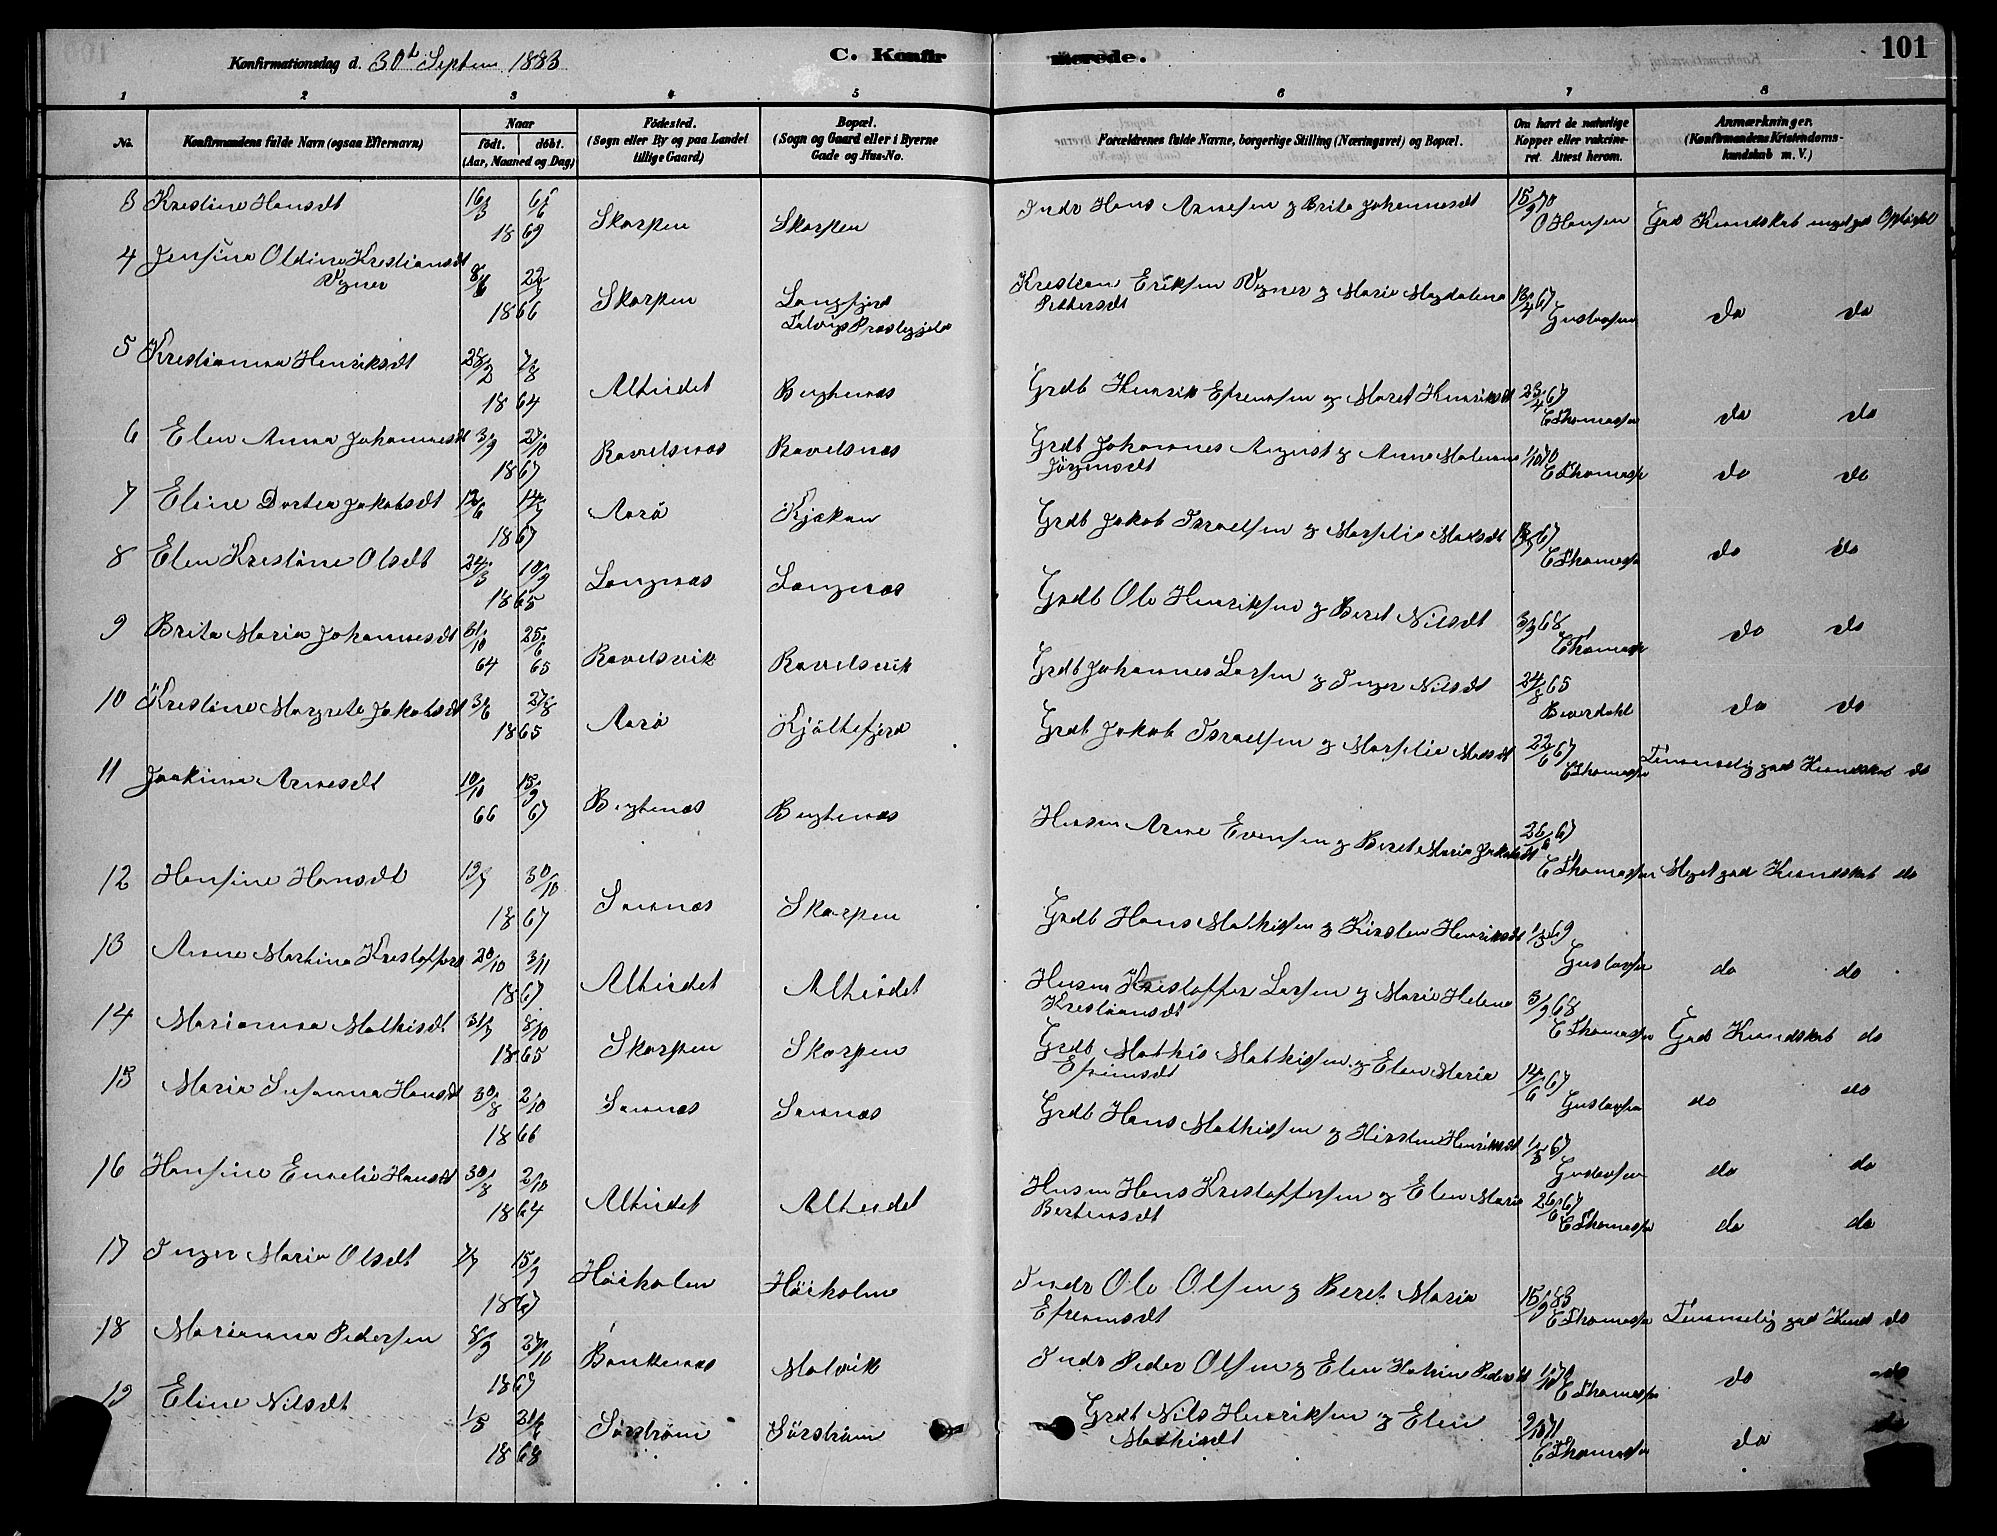 Konfirmationsdag d. 30t Septem 1883
C. Konfirmerede.
101
1 2 3 4 5 6 7 8
No.
Konfirmandens fulde Navn (ogsaa Efternavn)
Naar
födt. döbt.
(Aar, Maaned og Dag)
Födested.
(Sogn eller By og paa Landet
tillige Gaard)
Bopæl.
(Sogn og Gaard eller i Byerne
Gade og Hus-No.
Forældrenes fulde Navne, borgerlige Stilling (Næringsvei) og Bopæl.
Om havt de naturlige
Kopper eller vakcineret. Attest herom.
Anmærkninger.
(Konfirmandens Kristendomskundskab m. V.)
3 Kristine Hansdt 16/3 6/6 1869 Skorpen Skorpen Indr Hans Arnesen og Brita Johannesdt 15/9 70 O Hansen God Kundskab meget god Opförsel
4 Jensine Oldine Kristiansdt Wigner 22/7 1866 Skorpen Langfjord Talvigs Præstegjeld Kristian Eriksen Wigner og Marie Magdalena Pettersdt 13/4 67 Gustavsen do do
5 Kristianna Henriksdt 28/2 7/8 1864 Alteidet Bergtenæs Grdb Henrik Efremsen og Maret Henriksdt 23/4 67 E Thomassen do do
6 Elen Anna Johannesdt 3/9 27/10 1867 Ravelsnæs Ravelsnæs Grdb Johannes August og Anne Malene Jörgensdt 1/10 70 E Thomassen do do
7 Eline Dortea Jakobsdt 12/6 14/7 1867 Aarö Kjækan Grdb Jakob Israelsen og Marselie Madsdt 67 E Thomassen do do
8 Elen Kristine Olsdt 24/3 10/9 1865 Langnæs Langnæs Grdb Ole Henriksen og Beret Nilsdt 3/9 68 E Thomassen do do
9 Brita Maria Johannesdt 31/10 64 25/6 65 Ravelsvik Ravelsvik Grdb Johannes Larsen og Inger Nilsdt 24/8 65 Beverdahl do do
10 Kristine Margrete Jakobsdt 3/6 27/8 1865 Aarö Kjöllefjord Grdb Jakob Israelsen og Marselie Madsdt 22/6 67 E Thomassen Temmelig god Kundskab do
11 Joakima Arnesdt 10/10 66 15/9 67 Bergtenæs Bergtenæs Husm Arne Evensen og Beret Maria Jakobsdt 26/6 67 E Thomassen Meget god Kundskab do
12 Hansine Hansdt 19/7 30/10 1867 Sarnæs Skorpen Grdb Hans Mathissen og Kirsten Henriksdt 69 Gustavsen do do
13 Anne Martina Kristoffers 20/10 3/11 1867 Alteidet Alteidet Husm Kristoffer Larsen og Marie Helene Kristiansdt 3/9 68 E Thomassen God Kundskab do
14 Marianna Mathisdt 31/7 8/10 1865 Skorpen Skorpen Grdb Mathis Mathissen og Elen Maria Efremsdt 14/6 67 Gustavsen do do
15 Maria Susanna Hansdt 30/8 2/10 1866 Sarnæs Sarnæs Grdb Hans Mathissen og Kirsten Henriksdt 67 Gustavsen do do
16 Hansine Emelie Hansdt 30/8 2/10 1864 Alteidet Alteidet Husm Hans Kristoffersen og Elen Marie Bertensdt 26/6 67 E Thomassen do do
17 Inger Maria Olsdt 7/7 15/9 1867 Höiholm Höiholm Indr Ole Olsen og Beret Maria Efremsdt 15/9 83 E Thomassen Temmelig god Kund do
18 Marianna Pedersen 8/9 27/10 1867 Bankenæs Malvik Indr Peder Olsen og Elen Katrin Pedersdt 1/10 70 E Thomassen do do
19 Eline Nilsdt 1/5 31/7 1868 Sörström Sörström Grdb Nils Henriksen og Elen Mathisdt 9/10 71 E Thomassen do do